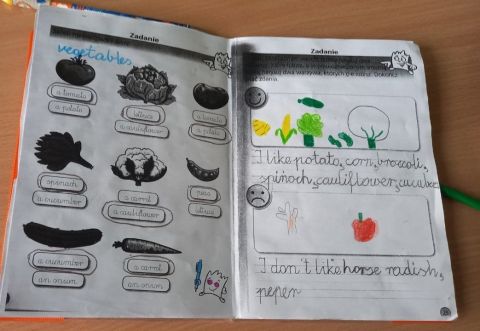 Zadanie
vegetables
a tomato
a potato
lettuce
a cauliflower
a tomato
a potato
spinach
a cucumber
a carrot
a cauliflower
peas
a cucumber
an onion
a carrot
an onion
Zadanie
I like potato, corn, broccoli,
spinoch, cauliflower, cucumber
I don't like horse radish,
peper